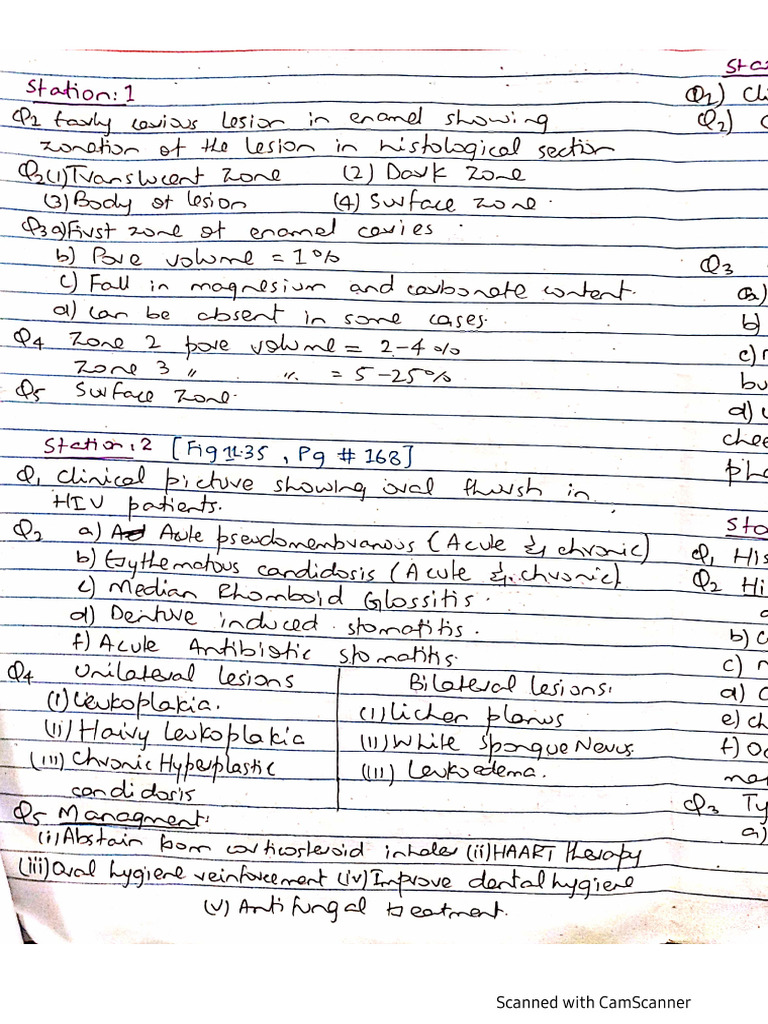 Station: 1
Q1 Early carious lesion in enamel showing
zonation of the lesion in histological section
Q2 (1) Translucent zone (2) Dark zone
(3) Body of lesion (4) Surface zone.
Q3 a) First zone of enamel caries.
b) Pore volume = 1%
c) Fall in magnesium and carbonate content.
d) can be absent in some cases.
Q4 Zone 2 pore volume = 2-4%
Zone 3 〃 〃 = 5-25%
Q5 Surface zone.
Station: 2 [Fig 11.35, Pg # 168]
Q1 Clinical picture showing oral thrush in
HIV patients.
Q2 a) Acute pseudomembranous (Acute & chronic)
b) Erythematous candidosis (Acute & chronic)
c) Median Rhomboid Glossitis.
d) Denture induced stomatitis.
f) Acute Antibiotic stomatitis.
Q4 Unilateral lesions
(i) Leukoplakia.
(ii) Hairy Leukoplakia
(iii) Chronic Hyperplastic
candidosis
Bilateral lesions:
(i) Lichen planus
(ii) White Sponque Nevus
(iii) Leukoedema.
Q5 Managment:
(i) Abstain from corticosteroid inhaler (ii) HAART therapy
(iii) Oral hygiene reinforcement (iv) Improve dental hygiene
(v) Antifungal treatment.
Q3
a)
b)
c)
d)
Q1 His
Q2 Hi
b)
c)
d)
e) ch
f)
Q3 Ty
a)
Scanned with CamScanner